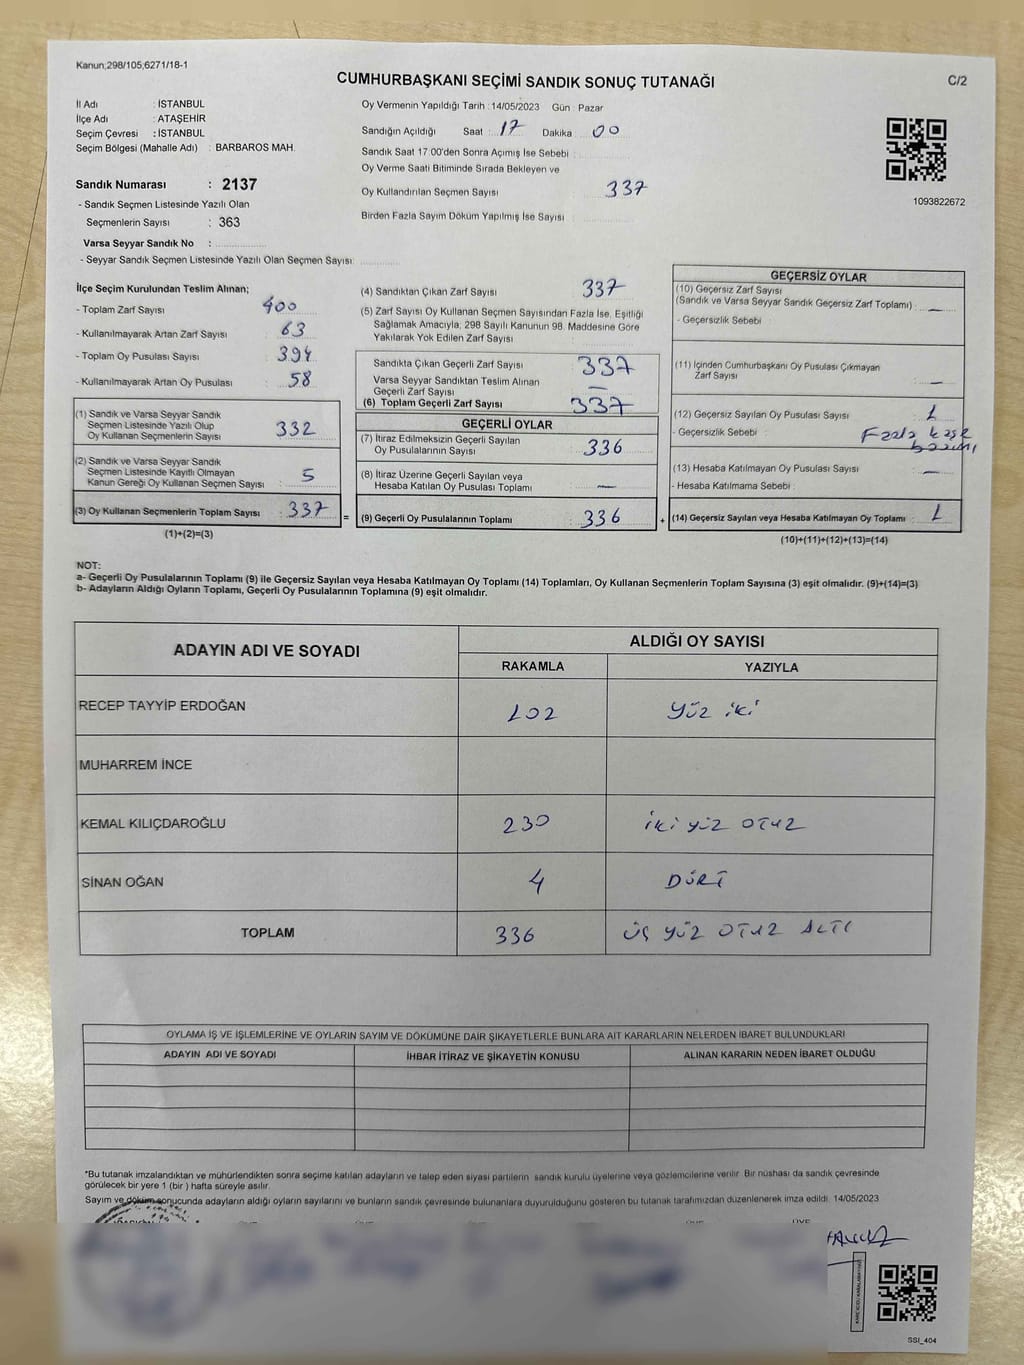 Kanun;298/105;6271/18-1
CUMHURBAŞKANI SEÇİMİ SANDIK SONUÇ TUTANAĞI
C/2
İl Adı : İSTANBUL
İlçe Adı : ATAŞEHİR
Seçim Çevresi : İSTANBUL
Seçim Bölgesi (Mahalle Adı) : BARBAROS MAH.
Sandık Numarası : 2137
- Sandık Seçmen Listesinde Yazılı Olan
Seçmenlerin Sayısı : 363
Varsa Seyyar Sandık No :
- Seyyar Sandık Seçmen Listesinde Yazılı Olan Seçmen Sayısı:
Oy Vermenin Yapıldığı Tarih :14/05/2023 Gün : Pazar
Sandığın Açıldığı Saat : 17 Dakika : 00
Sandık Saat 17:00'den Sonra Açımış İse Sebebi :
Oy Verme Saati Bitiminde Sırada Bekleyen ve
Oy Kullandırılan Seçmen Sayısı : 337
Birden Fazla Sayım Döküm Yapılmış İse Sayısı :
1093822672
İlçe Seçim Kurulundan Teslim Alınan;
- Toplam Zarf Sayısı : 400
- Kullanılmayarak Artan Zarf Sayısı : 63
- Toplam Oy Pusulası Sayısı : 394
- Kullanılmayarak Artan Oy Pusulası : 58
(1) Sandık ve Varsa Seyyar Sandık
Seçmen Listesinde Yazılı Olup
Oy Kullanan Seçmenlerin Sayısı : 332
(2) Sandık ve Varsa Seyyar Sandık
Seçmen Listesinde Kayıtlı Olmayan
Kanun Gereği Oy Kullanan Seçmen Sayısı : 5
(3) Oy Kullanan Seçmenlerin Toplam Sayısı : 337 =
(1)+(2)=(3)
(4) Sandıktan Çıkan Zarf Sayısı : 337
(5) Zarf Sayısı Oy Kullanan Seçmen Sayısından Fazla İse, Eşitliği
Sağlamak Amacıyla, 298 Sayılı Kanunun 98. Maddesine Göre
Yakılarak Yok Edilen Zarf Sayısı :
Sandıkta Çıkan Geçerli Zarf Sayısı : 337
Varsa Seyyar Sandıktan Teslim Alınan
Geçerli Zarf Sayısı : —
(6) Toplam Geçerli Zarf Sayısı : 337
GEÇERLİ OYLAR
(7) İtiraz Edilmeksizin Geçerli Sayılan
Oy Pusulalarının Sayısı : 336
(8) İtiraz Üzerine Geçerli Sayılan veya
Hesaba Katılan Oy Pusulası Toplamı : —
(9) Geçerli Oy Pusulalarının Toplamı : 336 +
GEÇERSİZ OYLAR
(10) Geçersiz Zarf Sayısı
(Sandık ve Varsa Seyyar Sandık Geçersiz Zarf Toplamı) : —
- Geçersizlik Sebebi :
(11) İçinden Cumhurbaşkanı Oy Pusulası Çıkmayan
Zarf Sayısı : —
(12) Geçersiz Sayılan Oy Pusulası Sayısı : 1
- Geçersizlik Sebebi : Fazla kaşe
basımı
(13) Hesaba Katılmayan Oy Pusulası Sayısı : —
- Hesaba Katılmama Sebebi :
(14) Geçersiz Sayılan veya Hesaba Katılmayan Oy Toplamı : 1
(10)+(11)+(12)+(13)=(14)
NOT:
a- Geçerli Oy Pusulalarının Toplamı (9) ile Geçersiz Sayılan veya Hesaba Katılmayan Oy Toplamı (14) Toplamları, Oy Kullanan Seçmenlerin Toplam Sayısına (3) eşit olmalıdır. (9)+(14)=(3)
b- Adayların Aldığı Oyların Toplamı, Geçerli Oy Pusulalarının Toplamına (9) eşit olmalıdır.
ADAYIN ADI VE SOYADI ALDIĞI OY SAYISI
RAKAMLA YAZIYLA
RECEP TAYYİP ERDOĞAN 102 yüz iki
MUHARREM İNCE
KEMAL KILIÇDAROĞLU 230 iki yüz otuz
SİNAN OĞAN 4 DÖRT
TOPLAM 336 üç yüz otuz altı
OYLAMA İŞ VE İŞLEMLERİNE VE OYLARIN SAYIM VE DÖKÜMÜNE DAİR ŞİKAYETLERLE BUNLARA AİT KARARLARIN NELERDEN İBARET BULUNDUKLARI
ADAYIN ADI VE SOYADI İHBAR İTİRAZ VE ŞİKAYETİN KONUSU ALINAN KARARIN NEDEN İBARET OLDUĞU
*Bu tutanak imzalandıktan ve mühürlendikten sonra seçime katılan adayların ve talep eden siyasi partilerin sandık kurulu üyelerine veya gözlemcilerine verilir. Bir nüshası da sandık çevresinde
görülecek bir yere 1 (bir ) hafta süreyle asılır.
Sayım ve döküm sonucunda adayların aldığı oyların sayılarını ve bunların sandık çevresinde bulunanlara duyurulduğunu gösteren bu tutanak tarafımızdan düzenlenerek imza edildi. 14/05/2023
SSI_404